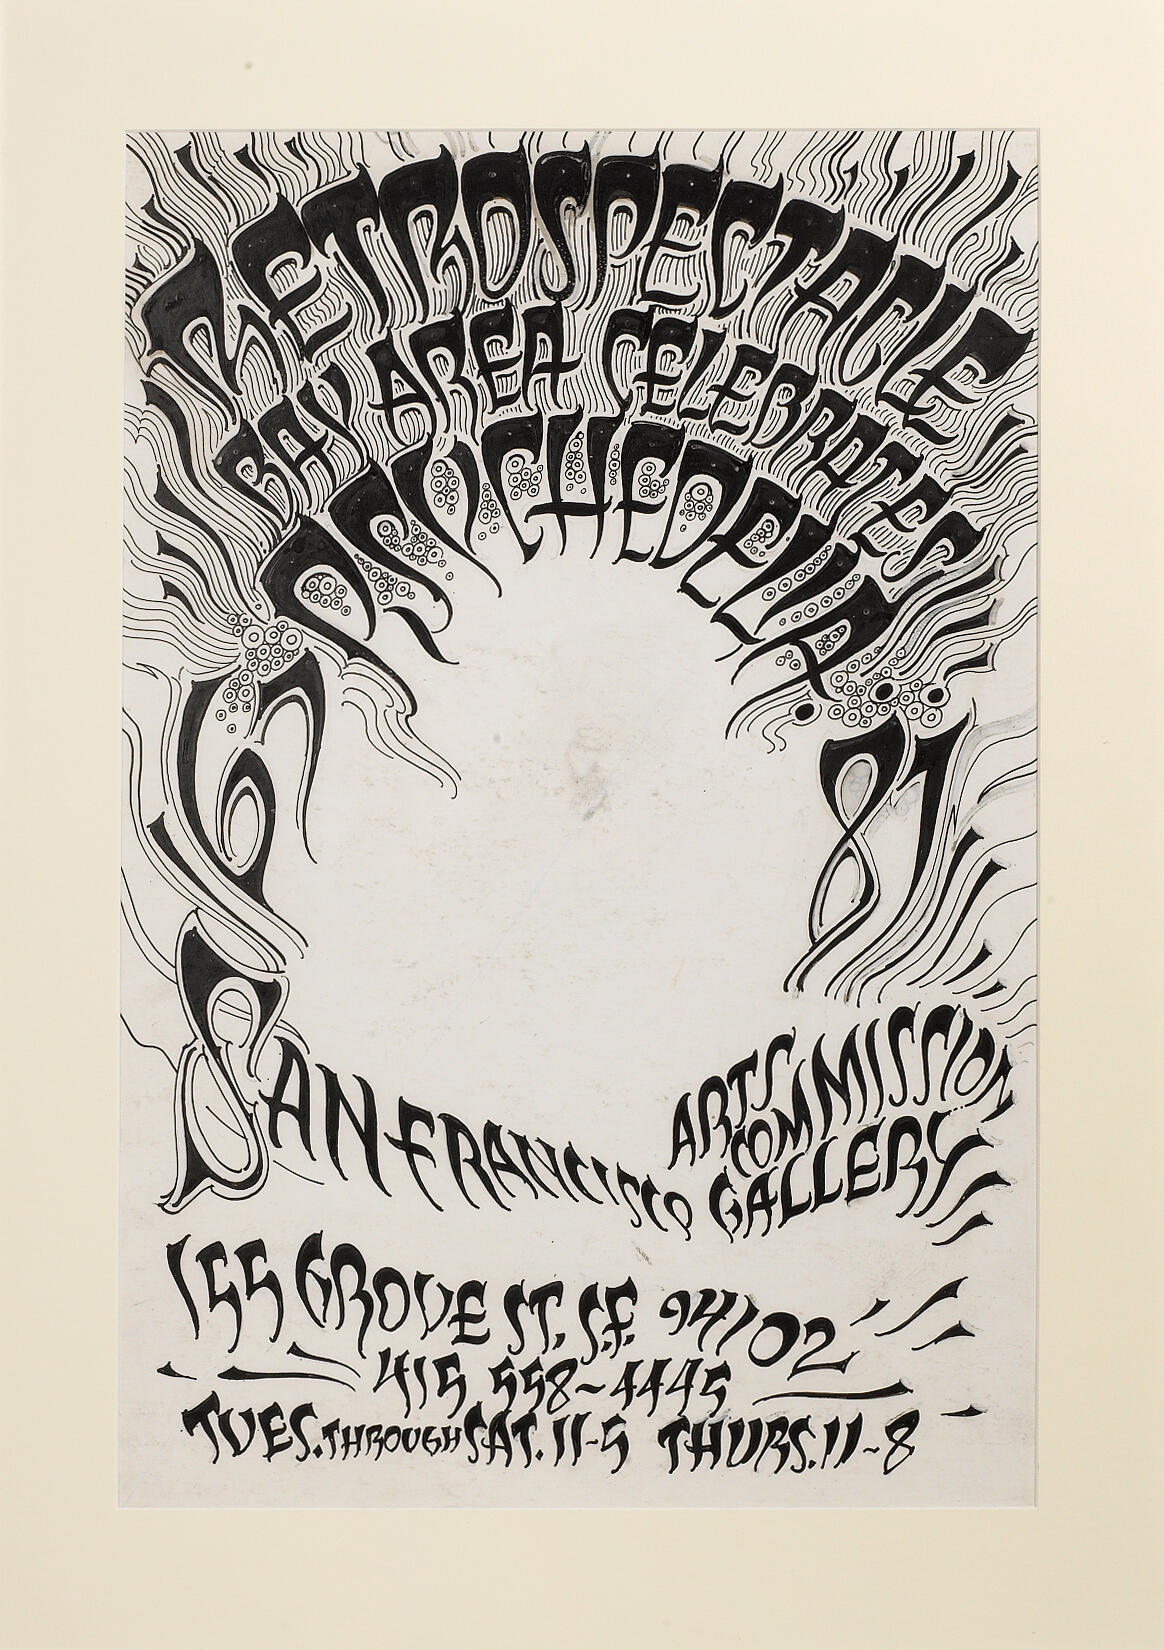 RETROSPECTACLE
BAY AREA CELEBRATES
PSYCHEDELIA
67 87
SAN FRANCISCO
ARTS
COMMISSION
GALLERY
155 GROVE ST. S.F. 94102
415 558-4445
TUES. THROUGH SAT. 11-5 THURS. 11-8